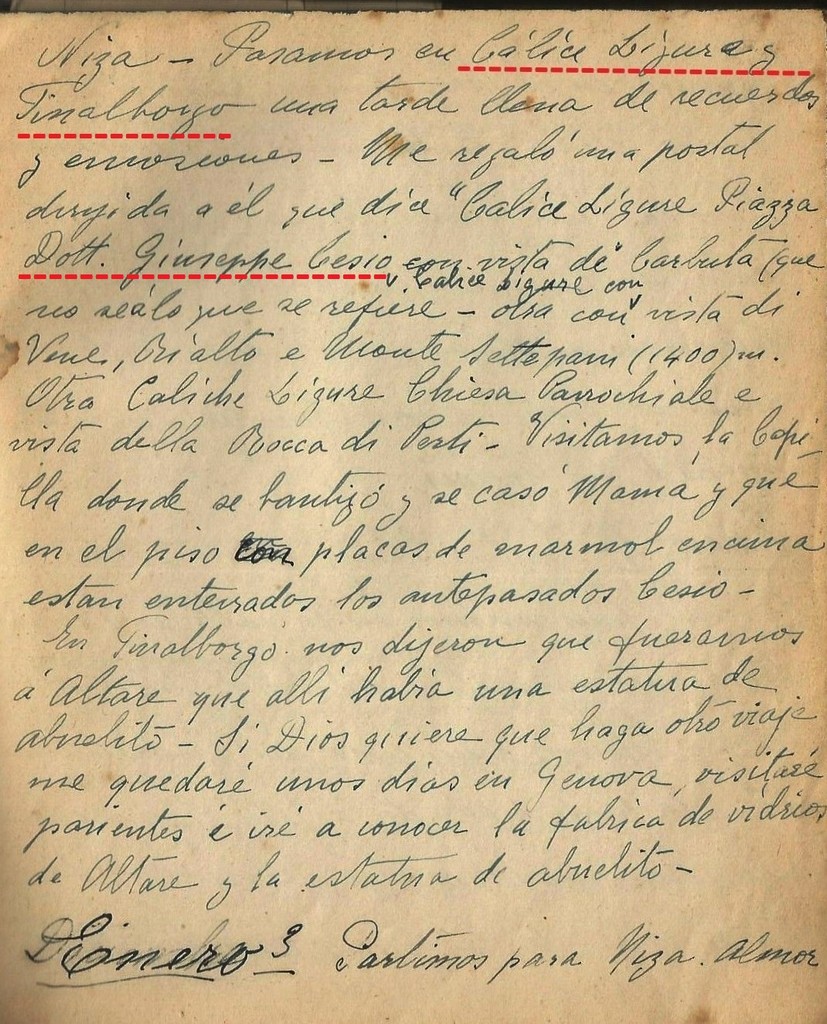 Niza - Pasamos en Cálice Ligure y
Finalborgo una tarde llena de recuerdos
y emosciones - Me regaló una postal
dirijida a él que dice "Calice Ligure Piazza
Dott. Giuseppe Cesio con vista de" Carbuta (que
v. Calice Ligure con
no sé a lo que se refiere - otra con v vista di
Vene, Rialto e Monte Settepani (1400) m.
Otra Caliche Ligure Chiesa Parrochiale e
vista della Rocca di Perti - Visitamos la Capi-
lla donde se bautizó y se casó Mamá y que
en el piso con placas de marmol encima
estan enterrados los antepasados Cesio -
En Finalborgo nos dijeron que fueramos
á Altare que alli habia una estatua de
abuelito - Si Dios quiere que haga otro viaje
me quedaré unos dias en Genova, visitaré
parientes é iré a conocer la fabrica de vidrios
de Altare y la estatua de abuelito -
Enero 3 Partimos para Niza. Almor